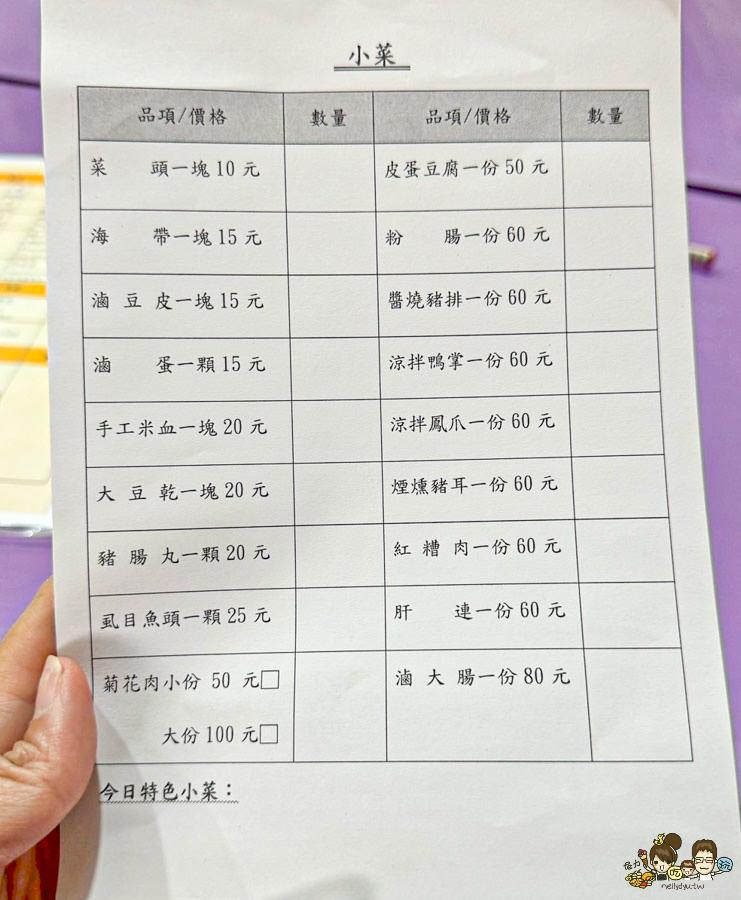 小菜
品項/價格 數量 品項/價格 數量
菜 頭一塊 10 元 皮蛋豆腐一份 50 元
海 帶一塊 15 元 粉 腸一份 60 元
滷 豆 皮一塊 15 元 醬燒豬排一份 60 元
滷 蛋一顆 15 元 涼拌鴨掌一份 60 元
手工米血一塊 20 元 涼拌鳳爪一份 60 元
大 豆 乾一塊 20 元 煙燻豬耳一份 60 元
豬 腸 丸一顆 20 元 紅 糟 肉一份 60 元
虱目魚頭一顆 25 元 肝 連一份 60 元
菊花肉小份 50 元□ 滷 大 腸一份 80 元
大份 100 元□
今日特色小菜：
nellydyu.tw